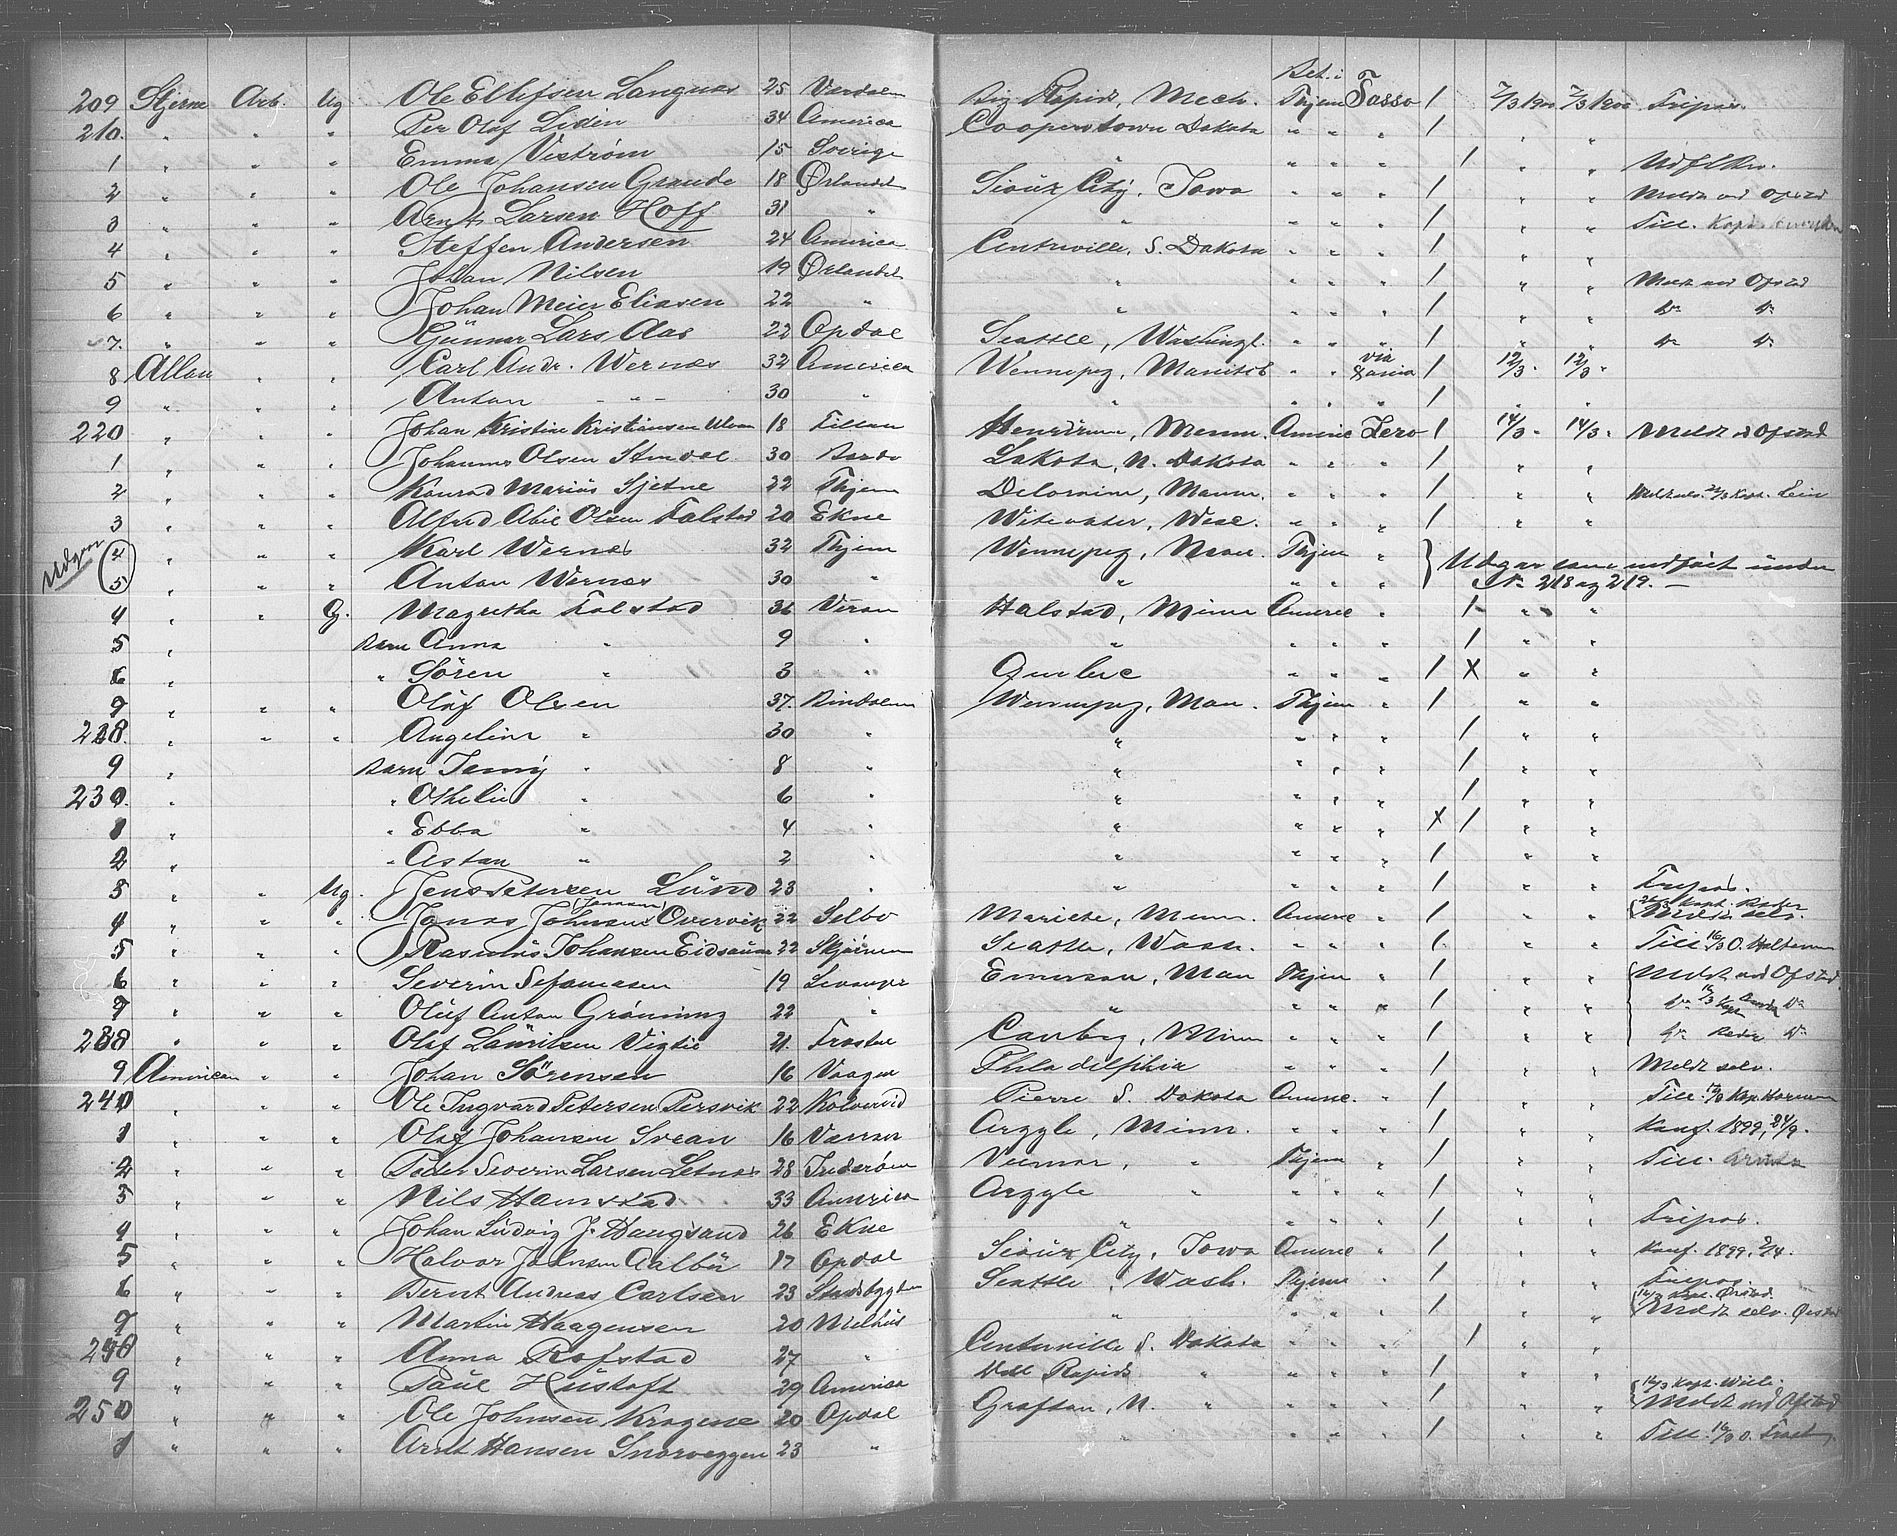 Bet. i
209 Stjerne Arb. Ug Ole Ellefsen Langnes 25 Verdalen Big Rapids, Mech. Thjem Tasso 1 7/3 1900 7/3 1900 Fripas.
210. " " " Per Olaf Liden 34 America Cooperstown Dakota " " " 1 " "
1 " " " Emma Viström 15 Sverige " " " " 1 " "
2 " " " Ole Johansen Grande 18 Ørlandet Sioux City, Iowa " " " 1 " " Meldt ved Ofstad
3 " " " Arnt Larsen Hoff 31 " " " " " 1 " " Till. Kapt.
4 " " " Steffen Andersen 24 America Centerville, S. Dakota " " " 1 " "
5 " " " Johan Nilsen 19 Ørlandet " " " " 1 " " Meldt ved Ofstad
6 " " " Johan Meier Eliasen 22 " " " " " 1 " " do do
7. " " " Gunnar Lars Aas 22 Opdal Seattle, Washingt. " " " 1 " " do do
8 Allan " " Carl Andr. Wernes 32 America Wennepeg, Manitob " " via 1 12/3 " 12/3 "
9 " " " Anton " 30 " " " " " 1 " "
220 " " " Johan Kristine Kristiansen Ulvan 18 Fillan Menn. Americ Zero 1 14/3 " 14/3 " Meldt v Ofstad
1 " " " Johannes Olsen Stendal 30 Lakota, N. Dakota " " " 1 " "
2 " " " Konrad Marius Sjetne 22 Thjem Mann. " " " 1 " "
3 " " " Alfred Abil Olsen Falstad 20 Ekne Witewater, Wesc. " " " 1 " "
Udgaar 4 " " " Karl Wernes 32 Thjem Wennepeg, Man. Thjem " } Udgaar som indført under
5 " " " Anton Wernes 30 " " " " " No 218 og 219. —
4 " " G. Magretha Falstad 36 Veran Halstad, Minn Americ " 1 " "
5 " Barn Anna " 9 " " " " " 1 " "
6 " " Sören " 3 " Quebec " " " 1 X " "
7 " " " Oluf Olsen 37. Rindalen Wennepeg, Man. Thjem " 1 " "
228 " " " Angeline " 30 " " " " " 1 " "
9 " Barn Jenny " 8 " " " " " 1 " "
230. " " Othelie " 6 " " " " " 1 " "
1 " " Ebba " 4 " " " " " X 1 " "
2 " " Astan " 2 " " " " " 1 " "
3 " " Ug. Jens Petersen Lund 23 " " " " " 1 " " Fripas.
4 " " " Jonas Johnsen (Jensen) Overvik 22 Selbo Mariette, Menn. Americ " 1 " " Meldt selv.
5 " " " Rasmus Johansen Eidsaune 22 Skjörnen Seattle, Wash. " " " 1 " " Till. 16/3 O. Haltemm
6 " " " Severin Sefaniasen 19 Levanger Emerson, Man Thjem " 1 " " Meldt ved Ofstad
7 " " " Oluf Anton Grönning 22 " " " " " 1 " " do do
238 " " " Olaf Lauritsen Vigtil 21. Frosten Canby, Minn " " " 1 " " do do
9 American " " Johan Sörensen 16 Vaagen Philadelphia " " " 1 " " Meldt selv.
240 " " " Ole Ingvard Petersen Persvik 22 Kolvereid Pierre S. Dakota Americ. " 1 " " Till. Kap.
1 " " " Olaf Johansen Svean 16 Argyle, Minn. " " " 1 " " Konf. 1899, 24/9.
2 " " " Peder Severin Larsen Letnes 28 Inderöen " Thjem " 1 " " Till.
3 " " " Nils Hamstad 33 America Argyle " " " " 1 " "
4 " " " Johan Ludvig J. Haugsand 26 Ekne " " " " 1 " " Fripas.
5 " " " Halvor Johnsen Aalbu 17 Opdal Sioux City, Iowa Americ " 1 " " Konf. 1899,
6 " " " Bernt Andreas Carlsen 23 Stadsbygden Seattle, Wash. Thjem " 1 " " Fripas.
7 " " " Martin Haagensen 20 Melhus " " " " 1 " " Meldt selv.
248 " " " Anna Rofstad 27 " Centerville S. Dakota " " " 1 " "
9 " " " Paul Hustoft 29 America Dell Rapids " " " " 1 " "
250 " " " Ole Johnsen Kragene 20 Opdal Grafton, N. " " " " 1 " " Meldt ved Ofstad
1 " " " Arnt Hansen Snoreggen 23 " " " " " 1 " " Till. 16/3 O.